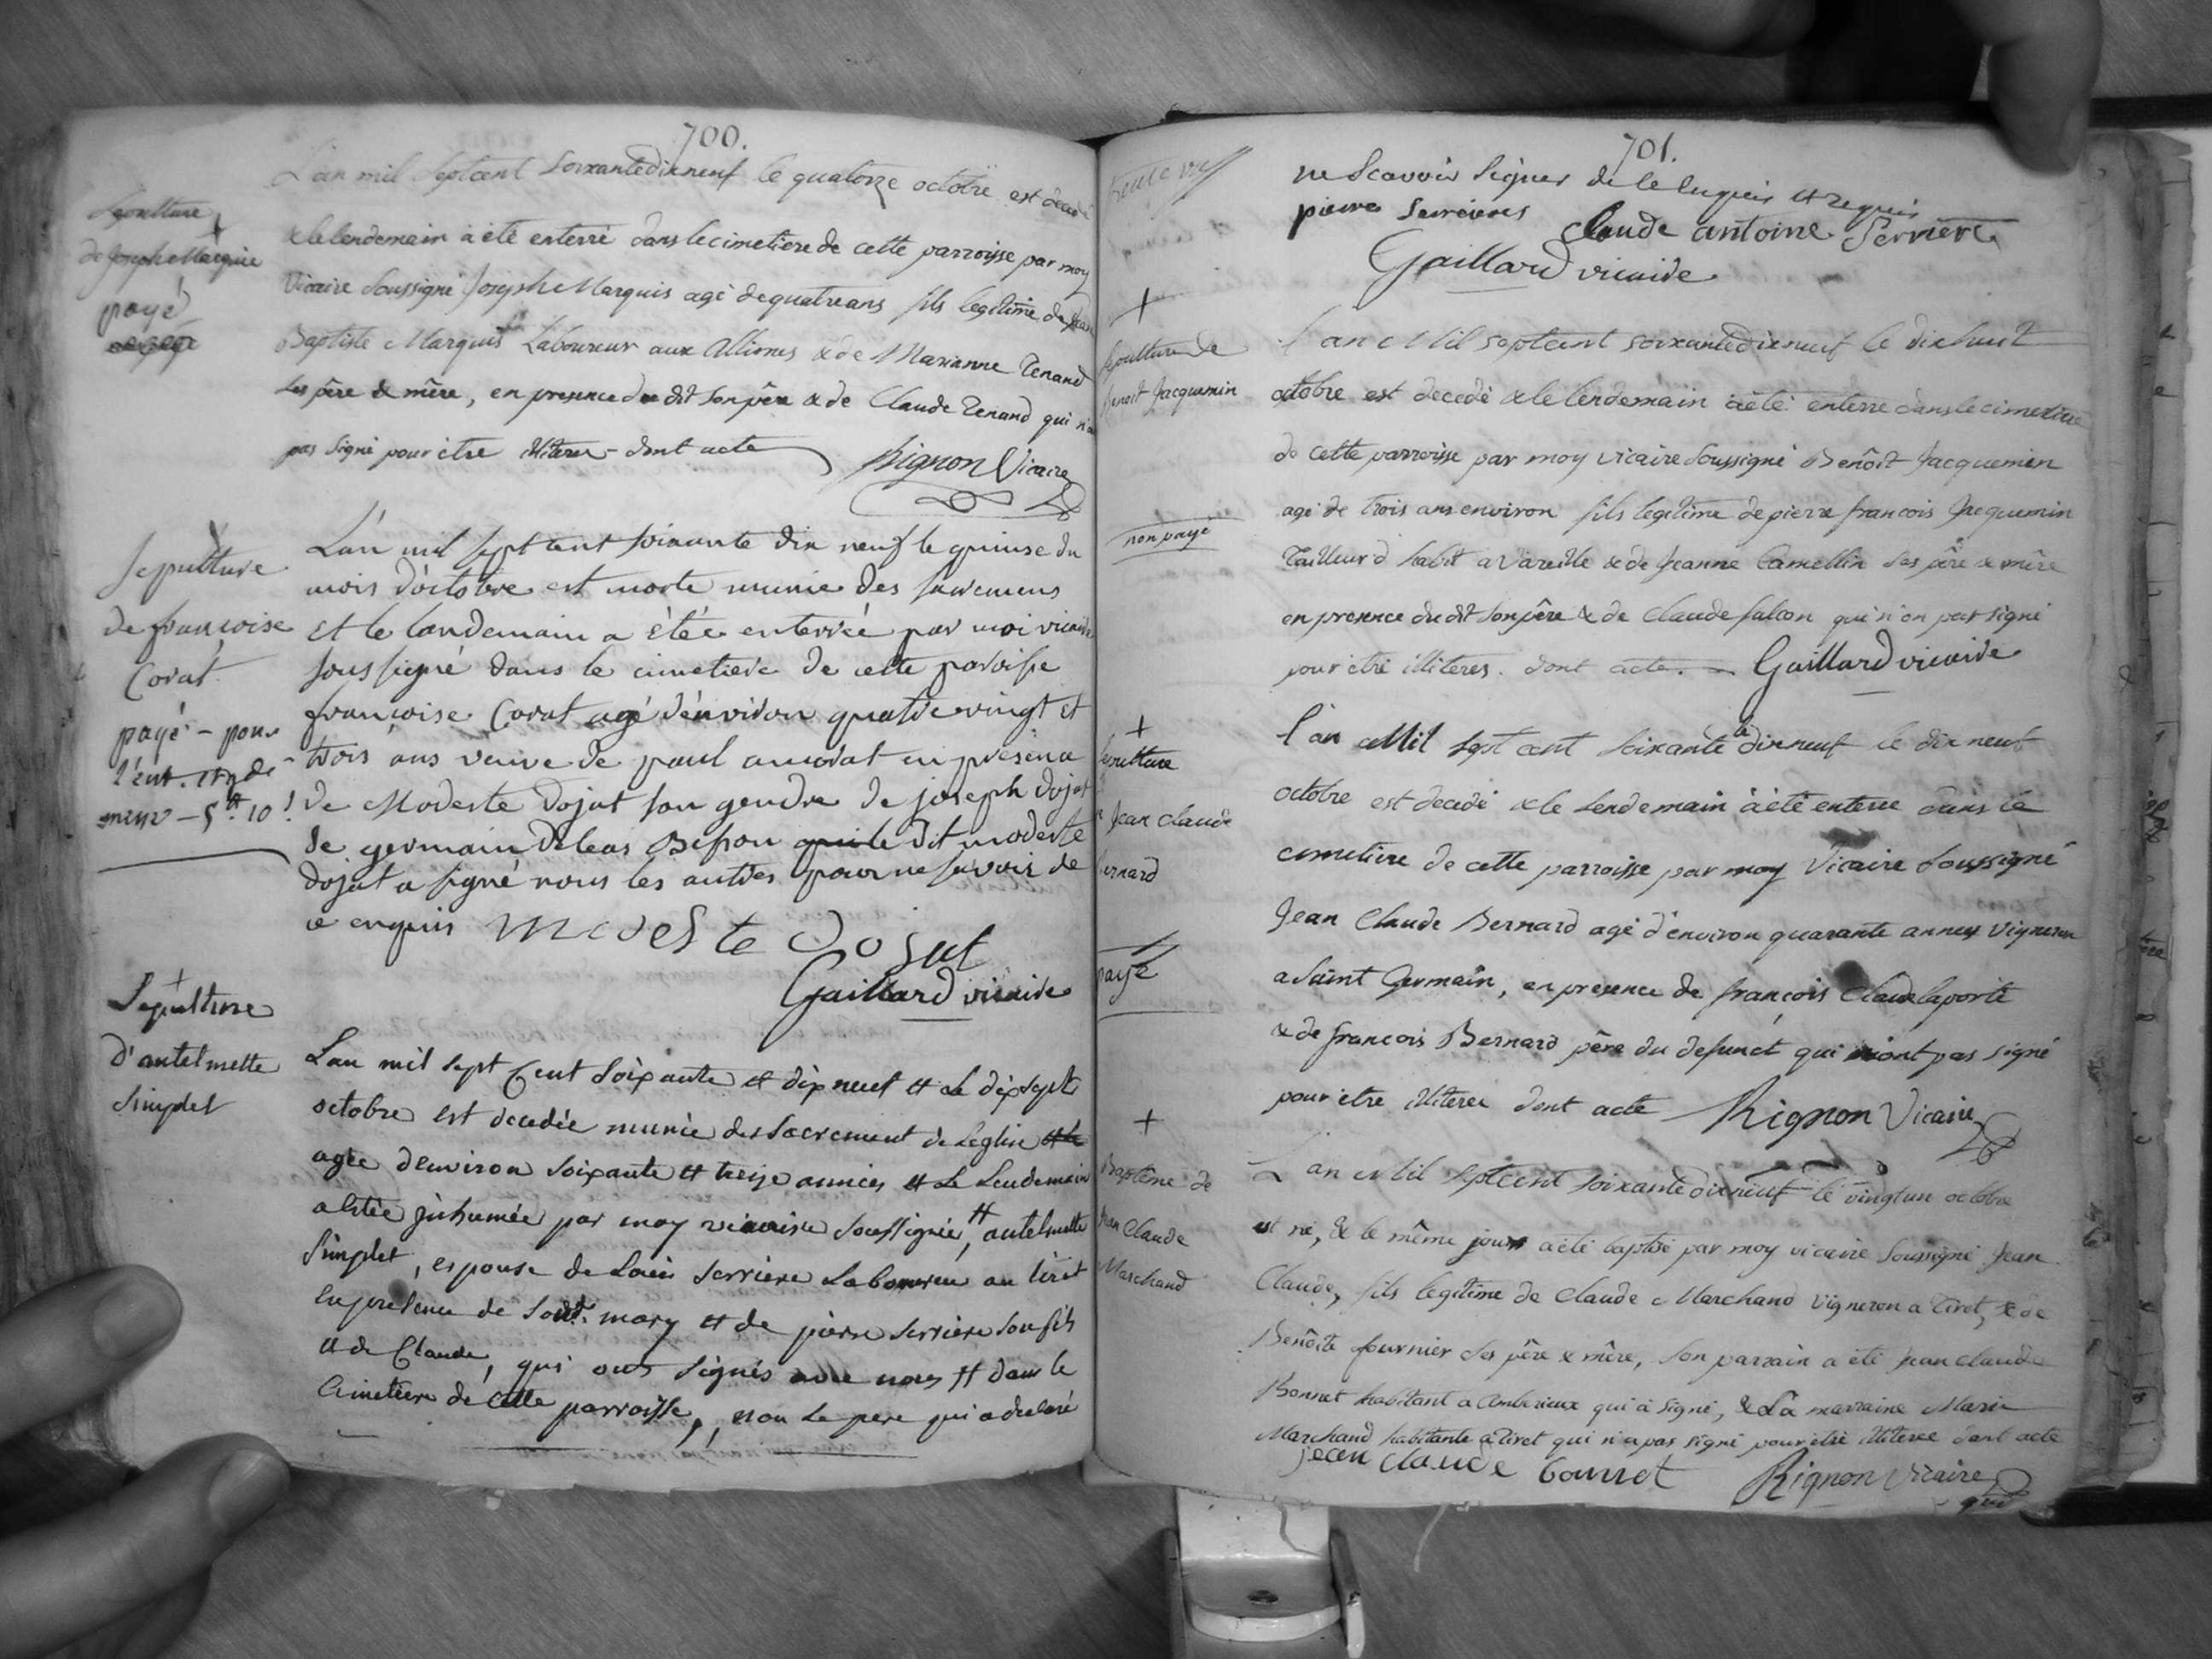 700.
Sepulture
de Joseph Marquis
payé
L'an mil septcent soixantedixneuf le quatorze octobre est decedé
& le lendemain a été enterré dans le cimetiere de cette parroisse par moy
Vicaire soussigné Joseph Marquis agé de quatre ans fils legitime de Jean
Baptiste Marquis Laboureur aux Allimes & de Marianne Tenand
ses père & mère, en presence du dit son père & de Claude Tenand qui n'on
pas signé pour être illiteres - dont acte
Rignon Vicaire
Sepulture
de françoise
Corat
payé - pour
l'ent.
5tt. 10s
L'an mil sept cent soixante dix neuf le quinse du
mois d'octobre est morte munie des sacremens
et le landemain a étée enterrée par moi vicaire
soussigné dans le cimetiere de cette paroisse
françoise Corat agé d'environ quatre vingt et
trois ans veuve de paul amorat en présence
de Modeste Dojat son gendre de joseph Dojat
de germain Deleas Besson qui le dit modeste
Dojat a signé nous les autres pour ne savoir de
ce enquis modeste Dojat
Gaillard vicaire
Sepulture
d'antelmette
Simplet
L'an mil sept Cent soixante et dix neuf et Le dix sept
octobre est decedée munie des Sacrement de Leglise et Le
agée denviron soixante et treize années et Le Lendemain
a estée inhumée par moy vicaire soussignée, # antelmette
Simplet, espouse de Louis serriere Laboureur au tiret
En presence de mary et de pierre serriere son fils
et de Claude, qui ont signés avec nous # dans le
Cimetiere de Cette parroisse, non le pere qui a declaré
701.
ne scavoir signer de ce enquis et requis
pierre serrieres Claude antoine Serriere
Gaillard vicaire
Sepulture de
Benoit Jacquemin
non payé
L'an Mil septcent soixantedixneuf le dixhuit
octobre est decedé & le lendemain a été enterré dans le cimetiere
de cette parroisse par moy vicaire soussigné Benôit Jacquemin
agé de trois ans environ fils legitime de pierre francois Jacquemin
Tailleur d'habit a Vareille & de Jeanne Camellin ses père & mère
en presence du dit son père & de Claude falcon qui n'on pas signé
pour être illiteres. dont acte. Gaillard vicaire
Sepulture
de Jean Claude
Bernard
payé
L'an Mil sept cent soixante dixneuf le dix neuf
octobre est decedé & le lendemain a été enterré dans le
cimetiere de cette parroisse par moy Vicaire soussigné
Jean Claude Bernard agé d'environ quarante années Vigneron
a Saint Germain, en presence de françois Claude laporte
& de francois Bernard père du defunct qui n'ont pas signé
pour être illiteres dont acte Rignon Vicaire
Baptême de
Jean Claude
Marchand
L'an Mil septcent soixantedixneuf le vingtun octobre
est né, & le même jour a été baptisé par moy vicaire soussigné Jean
Claude, fils legitime de Claude Marchand Vigneron a Tiret, & de
Benôite fournier ses père & mère, son parrain a été Jean Claude
Bonnet habitant a Amberieux qui a signé, & La marraine Marie
Marchand habitante a Tiret qui n'a pas signé pour être illiteree dont acte
jean claude bonnet Rignon Vicaire